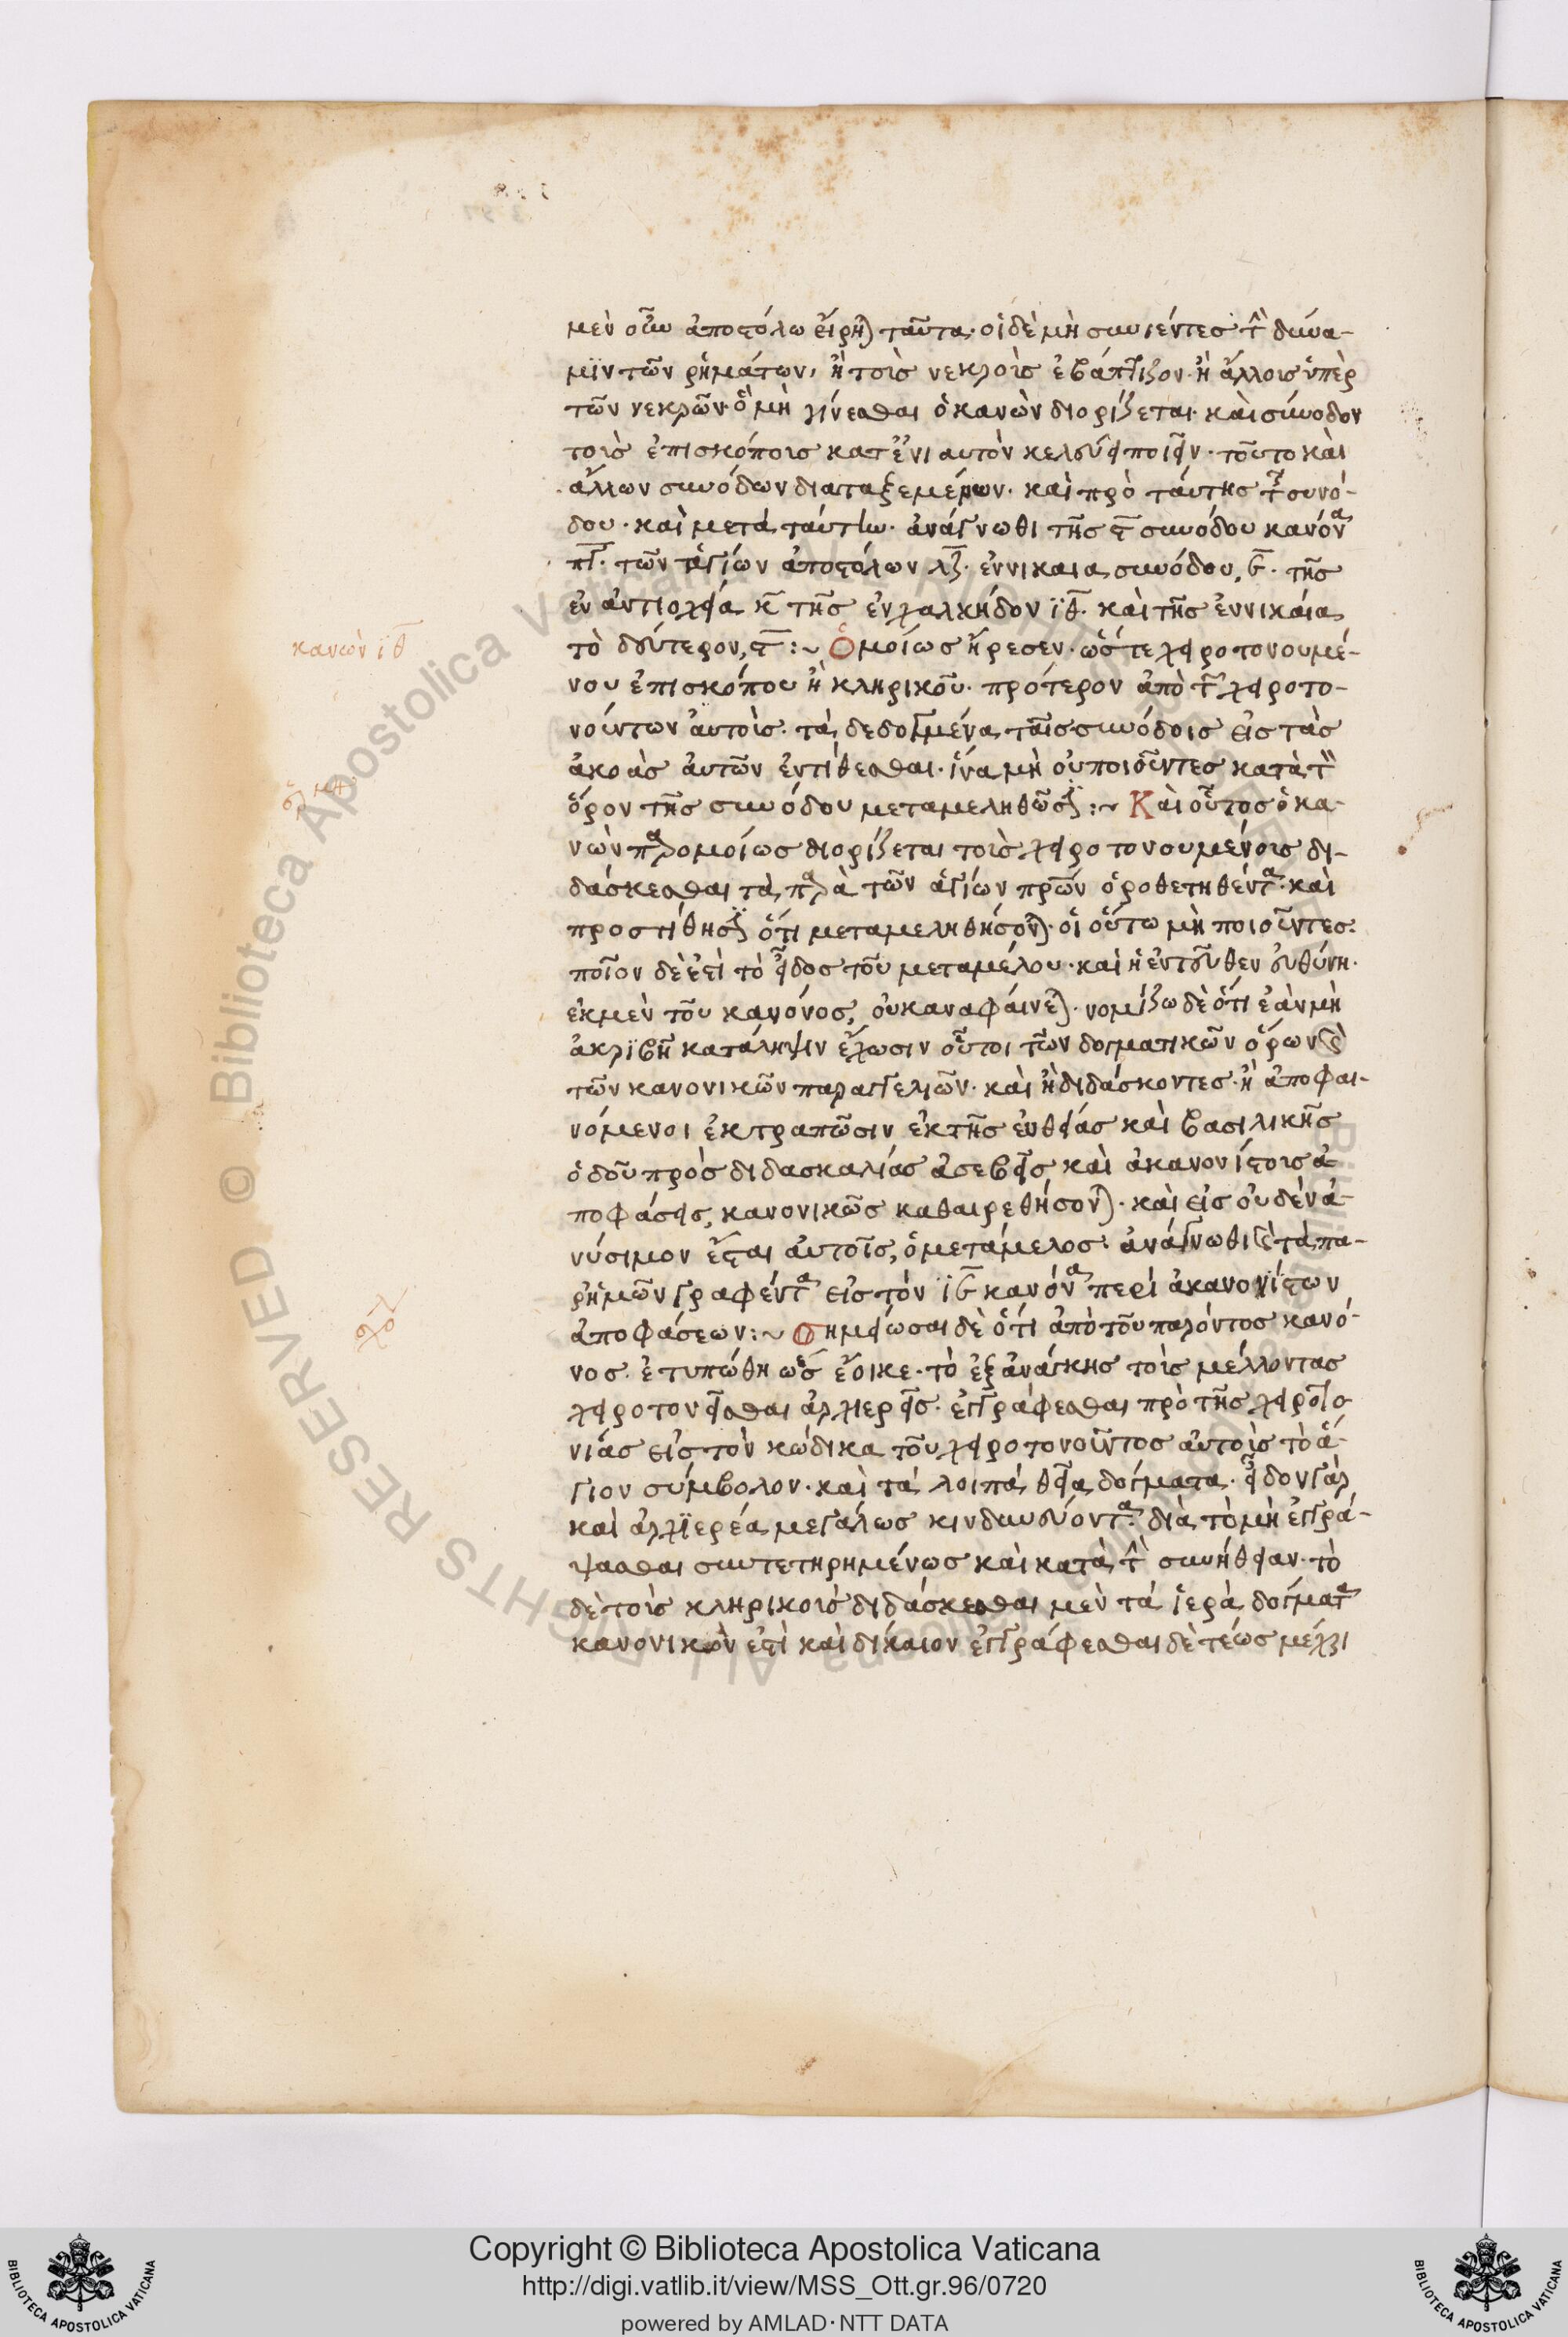 μὲν οὖν ἀποστόλω εἴρηται ταῦτα· οἱ δὲ μὴ συνιέντες τὴν δύνα-
μϊν τῶν ρημάτων, ἢ τοῖς νεκροῖς ἐβάπτιζον· ἢ ἄλλοις ὑπὲρ
τῶν νεκρῶν· ὃ μὴ γίνεσθαι ὁ κανὼν διορίζεται· καὶ σύνοδον
τοῖς ἐπισκόποις κατ' ἐνιαυτὸν κελεύει ποιεῖν· τοῦτο καὶ
ἄλλων συνόδων διαταξεμένων· καὶ πρὸ ταύτης τῆς συνό-
δου· καὶ μετὰ ταύτην· ἀνάγνωθι τῆς ϛ συνόδου κανόνα
τῶν ἁγίων ἀποστόλων λζ· ἐν νικαια συνόδου, ε· τῆς
ἐν ἀντιοχεία κ τῆς ἐν χαλκηδόνι ϊθ· καὶ τῆς ἐν νικαία
τὸ δεύτερον, ϛ :~ Ὁμοίως ἤρεσεν· ὥστε χειροτονουμέ-
νου ἐπισκόπου ἢ κληρικοῦ· πρότερον ἀπὸ τῶν χειροτο-
νούντων αὐτοὺς· τὰ δεδογμένα ταῖς συνόδοις εἰς τὰς
ἀκοὰς αὐτῶν ἐντίθεσθαι· ἵνα μὴ οὐ ποιοῦντες κατὰ τὸν
ὅρον τῆς συνόδου μεταμεληθῶσϊ :~ Καὶ οὗτος ὁ κα-
νὼν παρομοίως διορίζεται τοῖς χειροτονουμένοις δι-
δάσκεσθαι τὰ παρὰ τῶν ἁγίων πρων ὁροθετηθέντα· καὶ
προστίθησϊ ὅτι μεταμεληθήσονται· οἱ οὕτω μὴ ποιοῦντες:
ποῖον δὲ ἐστὶ τὸ εἶδος τοῦ μεταμέλου· καὶ ἡ ἐντεῦθεν εὐθύνη·
ἐκ μὲν τοῦ κανόνος, οὐκ αναφαίνεται· νομίζω δὲ ὅτι ἐὰν μὴ
ἀκριβῆ κατάληψιν ἔχωσιν οὗτοι τῶν δογματικῶν ὅρων καὶ
τῶν κανονικῶν παραγγελιῶν· καὶ ἢ διδάσκοντες· ἢ ἀποφαι-
νόμενοι ἐκτραπῶσιν ἐκ τῆς εὐθείας καὶ βασιλικῆς
ὁδοῦ πρὸς διδασκαλίας ἀσεβεῖς καὶ ἀκανονίστοις ἀ-
ποφάσεις, κανονικῶς καθαιρεθήσονται· καὶ εἰς οὐδὲν ἀ-
νύσιμον ἔσται αὐτοῖς, ὁ μετάμελος· ἀνάγνωθι καὶ τὰ πα-
ρ' ἡμῶν γραφέντα εἰς τὸν ϊε κανόνα περὶ ἀκανονίστων
ἀποφάσεων :~ Σημείωσαι δὲ ὅτι ἀπὸ τοῦ παρόντος κανό-
νος· ἐτυπώθη ὡς ἔοικε· τὸ ἐξ ἀνάγκης τοὺς μέλλοντας
χειροτονεῖσθαι ἀρχιερεῖς· ἐγγράφεσθαι πρὸ τῆς χειροτο-
νίας εἰς τὸν κώδικα τοῦ χειροτονοῦντος αὐτοὺς τὸ ἅ-
γιον σύμβολον· καὶ τὰ λοιπὰ θεῖα δόγματα· εἶδον γὰρ
καὶ ἀρχϊερέα μεγάλως κινδυνεύοντα· διὰ τὸ μὴ ἐγγρά-
ψασθαι συντετηρημένως καὶ κατὰ τὴν συνήθειαν· τὸ
δὲ τοὺς κληρικοὺς διδάσκεσθαι μὲν τὰ ἱερὰ δόγματα
κανονικὸν ἐστὶ καὶ δίκαιον ἐγγράφεσθαι δὲ τέως μέχρι
κανὼν ϊθ
Copyright © Biblioteca Apostolica Vaticana
http://digi.vatlib.it/view/MSS_Ott.gr.96/0720
powered by AMLAD·NTT DATA
BIBLIOTECA APOSTOLICA VATICANA
BIBLIOTECA APOSTOLICA VATICANA